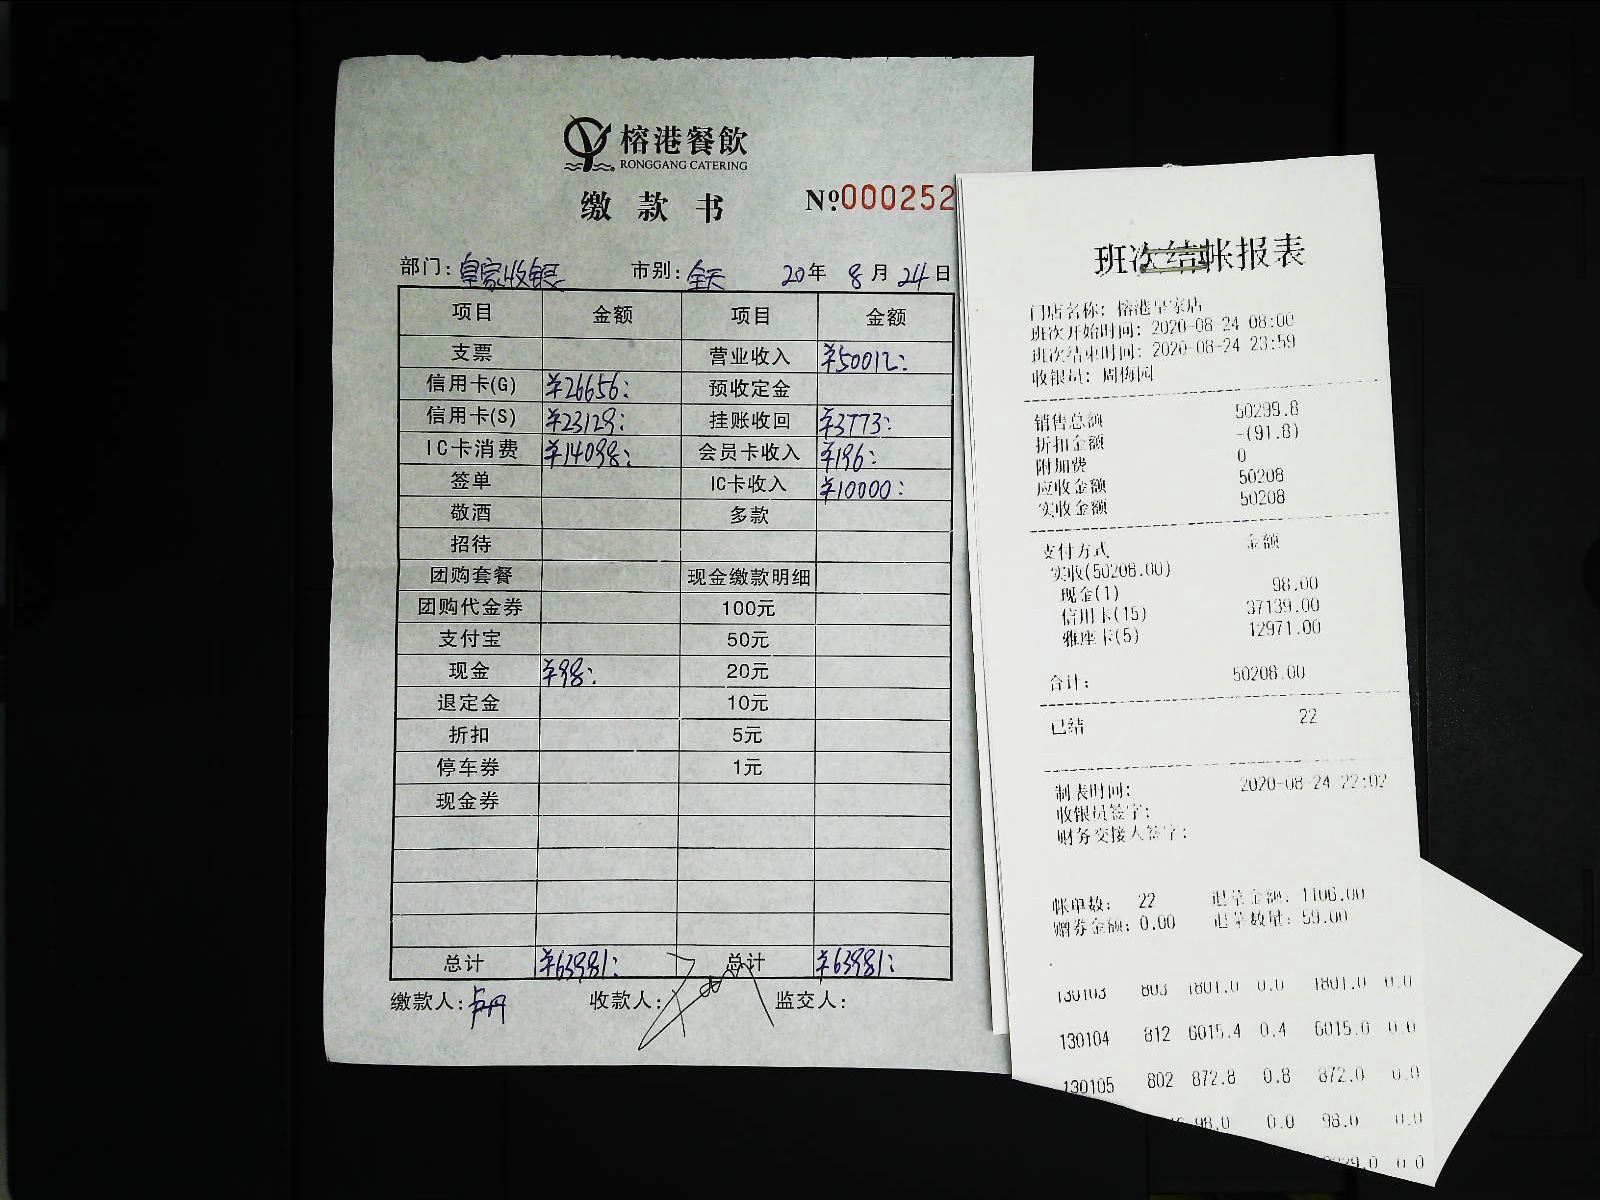 榕港餐飲
RONGGANG CATERING
缴款书 №000252
部门：皇家收银 市别：全天 20年8月24日
项目 金额 项目 金额
支票 营业收入 ¥50012：
信用卡(G) ¥26656： 预收定金
信用卡(S) ¥23129： 挂账收回 ¥3773：
IC卡消费 ¥14098： 会员卡收入 ¥196：
签单 IC卡收入 ¥10000：
敬酒 多款
招待
团购套餐 现金缴款明细
团购代金券 100元
支付宝 50元
现金 ¥98： 20元
退定金 10元
折扣 5元
停车券 1元
现金券
总计 ¥63981： 总计 ¥63981：
缴款人： 收款人： 监交人：
班次结帐报表
门店名称：榕港皇家店
班次开始时间：2020-08-24 08:00
班次结束时间：2020-08-24 23:59
收银员：周梅园
销售总额 50299.8
折扣金额 -(91.8)
附加费 0
应收金额 50208
实收金额 50208
支付方式 金额
实收(50208.00)
现金(1) 98.00
信用卡(15) 37139.00
雅座卡(5) 12971.00
合计： 50208.00
已结 22
制表时间： 2020-08-24 22:02
收银员签字：
财务交接人签字：
帐单数： 22 退菜金额：1106.00
赠券金额：0.00 退菜数量：59.00
130103 803 1801.0 0.0 1801.0 0.0
130104 812 6015.4 0.4 6015.0 0.0
130105 802 872.8 0.8 872.0 0.0
98.0 0.0 98.0 0.0
29.0 0.0